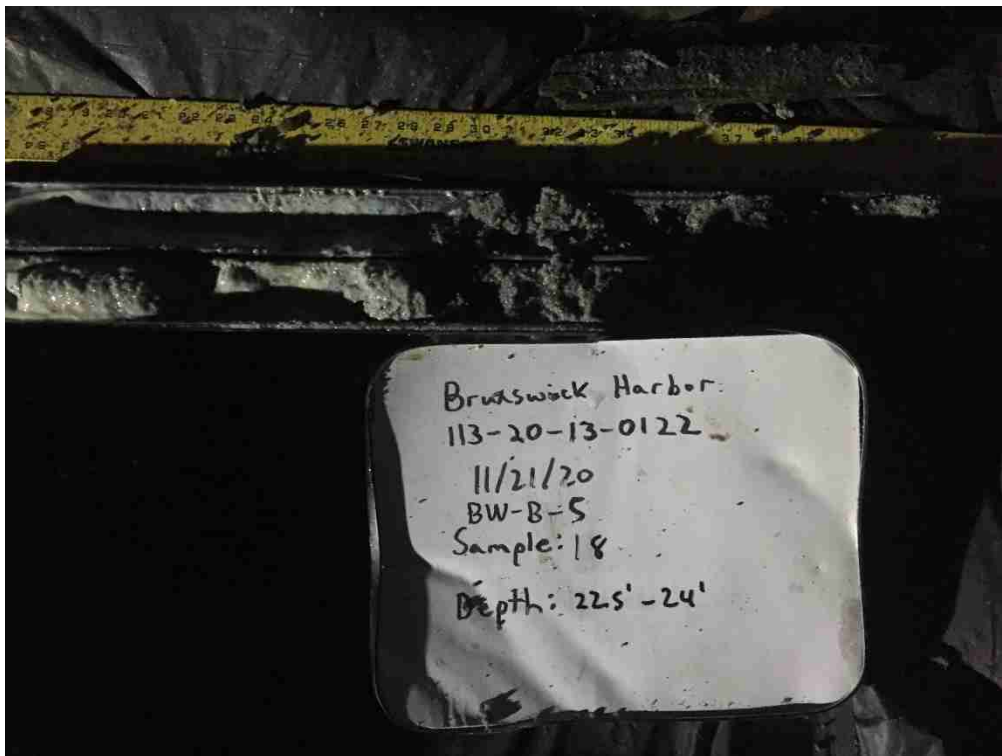 26 27 28 29 30
37
Brunswick Harbor
113-20-13-0122
11/21/20
BW-B-5
Sample: 18
Depth: 22.5'-24'